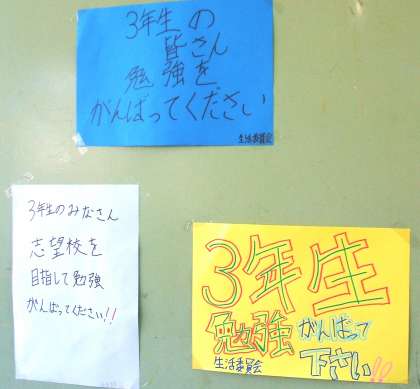 3年生の
皆さん
勉強を
がんばってください
生活委員会
3年生のみなさん
志望校を
目指して勉強
がんばってください!!
3年生
勉強がんばって
下さい!!
生活委員会